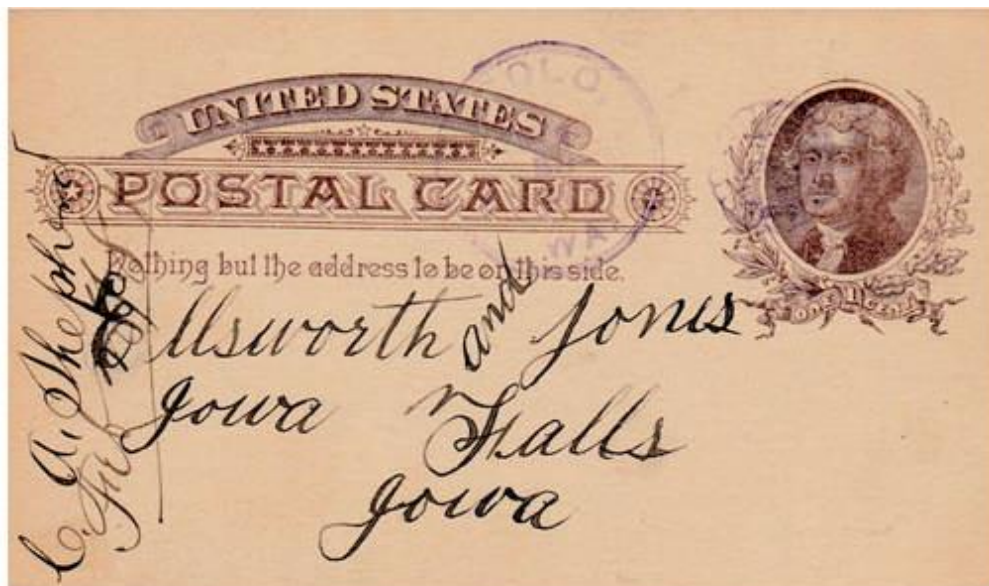 UNITED STATES
POSTAL CARD
Nothing but the address to be on this side.
Ellsworth and Jones
Iowa Falls
Iowa
One Cent
OLO,
WA.
C. A. Shepherd